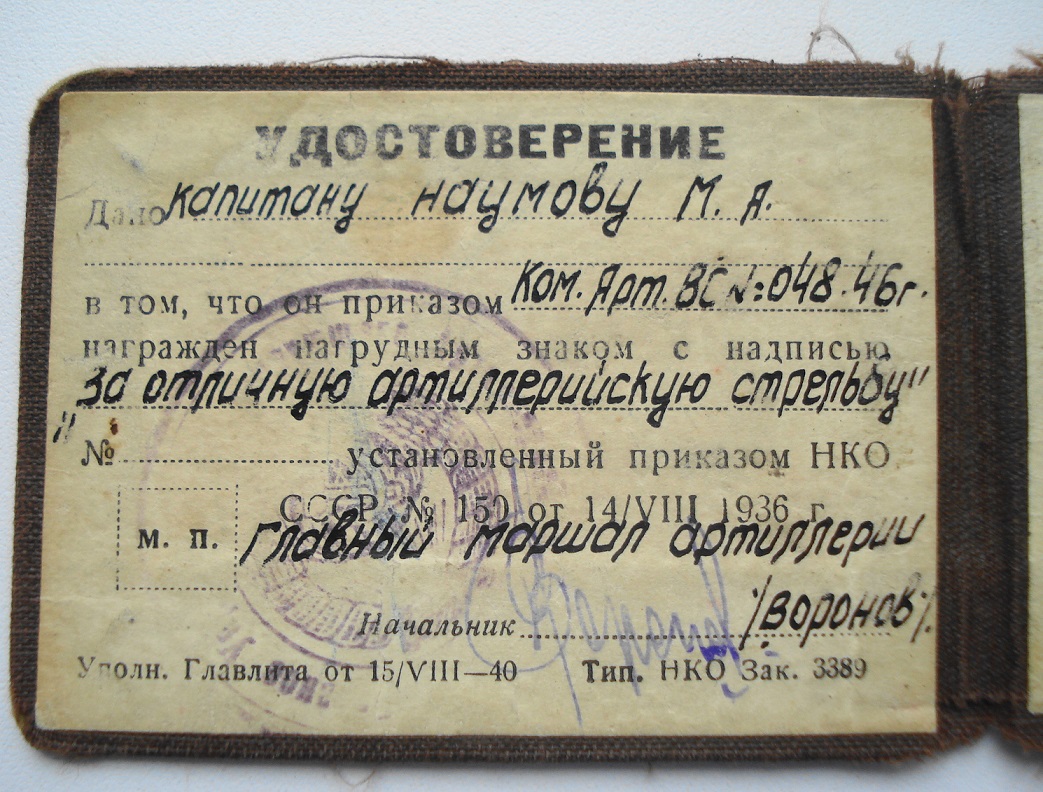 УДОСТОВЕРЕНИЕ
Дано капитану Наумову М. А.
в том, что он приказом Ком. Арт. ВС №: 048. 46г.
награжден нагрудным знаком с надписью
"За отличную артиллерийскую стрельбу"
№ установленный приказом НКО
СССР № 150 от 14/VIII 1936 г.
м. п. Главный маршал артиллерии
/Воронов/.
Начальник
Уполн. Главлита от 15/VIII—40 Тип. НКО Зак. 3389